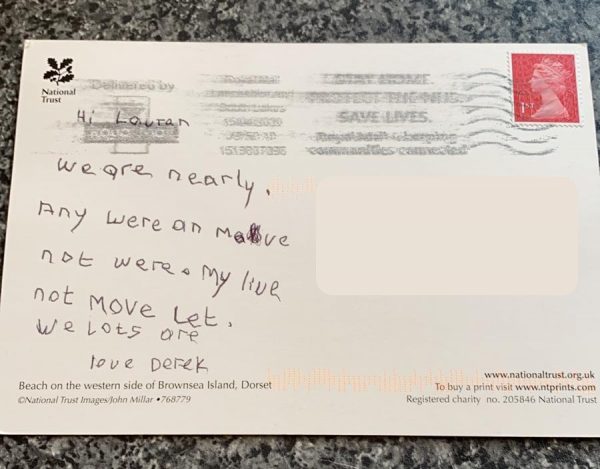 National
Trust
Delivered by
STAY HOME
PROTECT THE NHS
SAVE LIVES.
1ST
Hi Lauran
we are nearly,
Any were an move
not were. My live
not MOVE Let.
We Lots are
love Derek
Beach on the western side of Brownsea Island, Dorset
©National Trust Images/John Millar •768779
www.nationaltrust.org.uk
To buy a print visit www.ntprints.com
Registered charity no. 205846 National Trust